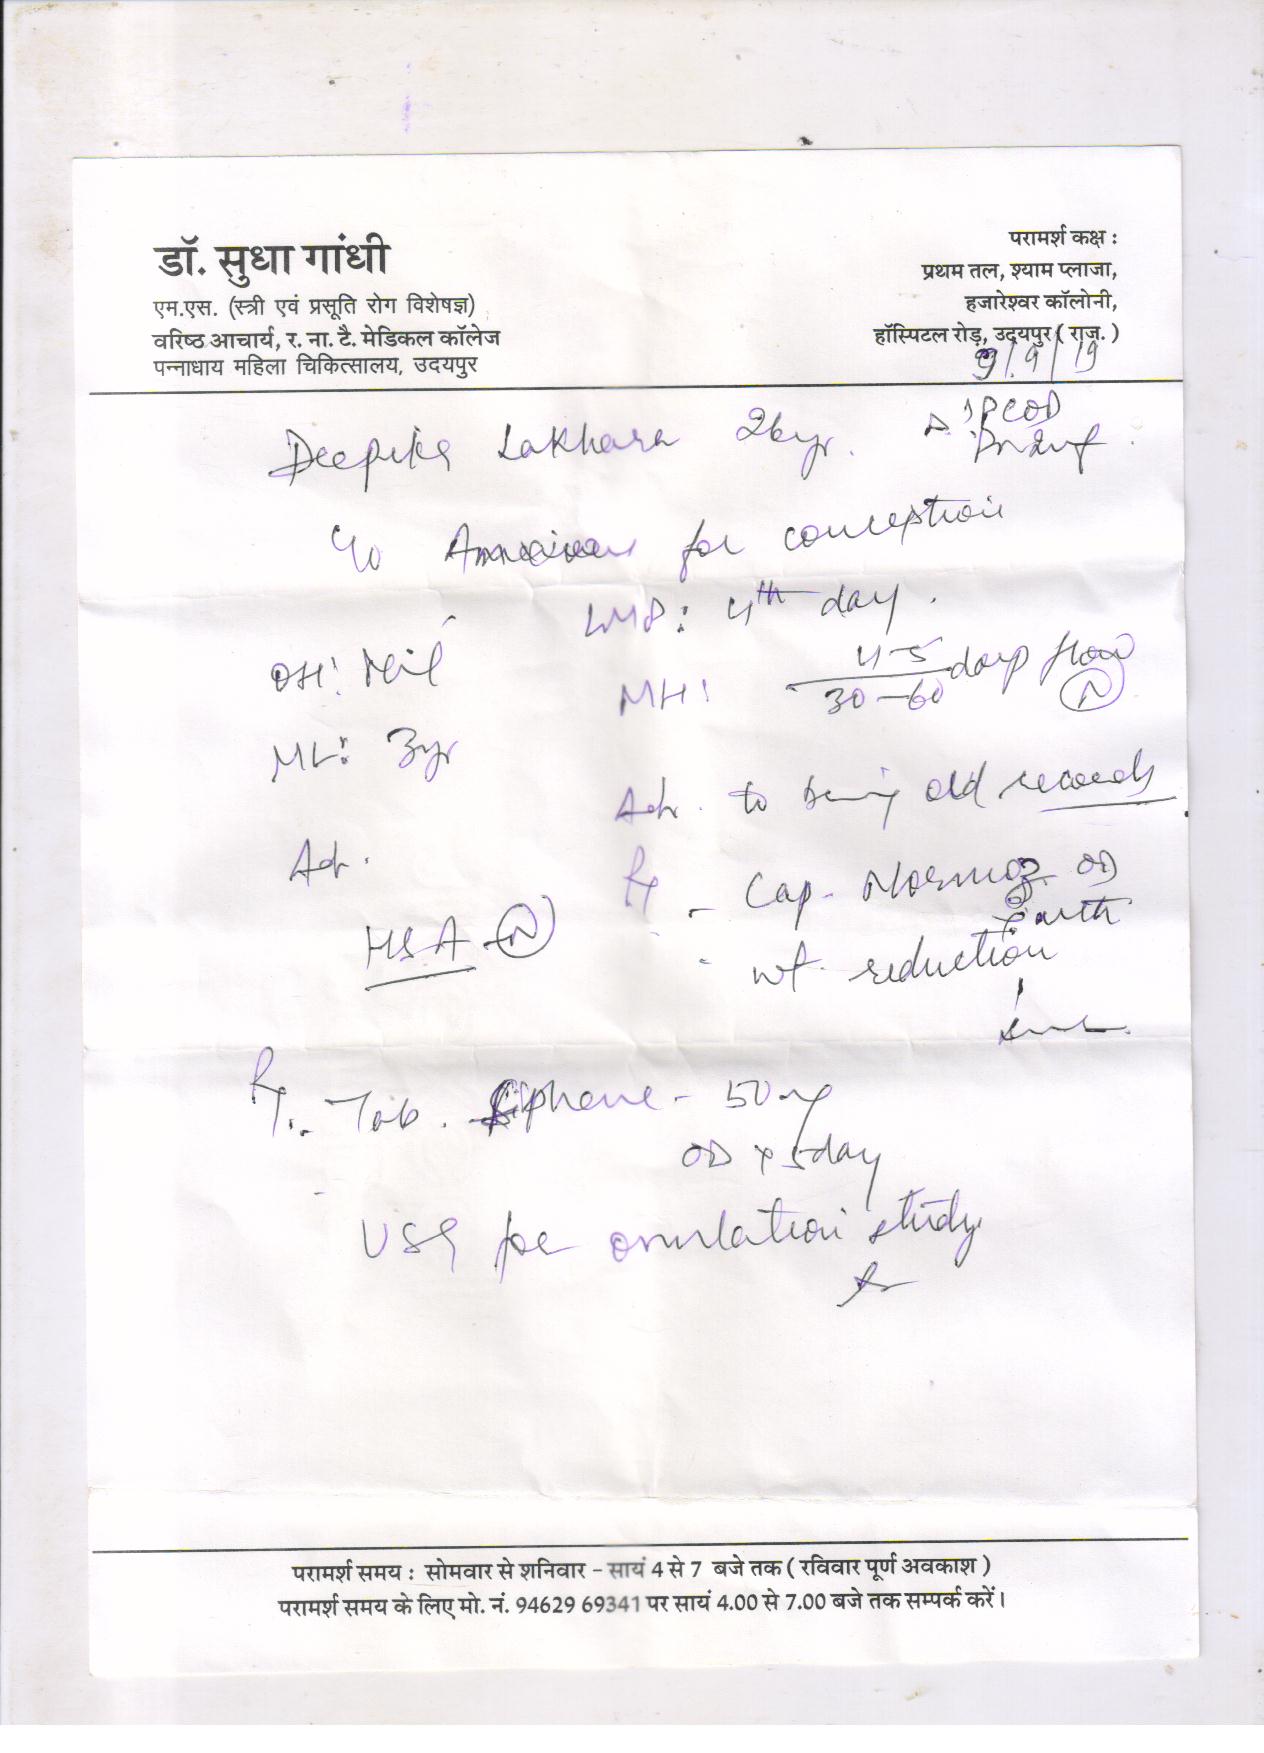 डॉ. सुधा गांधी
एम.एस. (स्त्री एवं प्रसूति रोग विशेषज्ञ)
वरिष्ठ आचार्य, र. ना. टै. मेडिकल कॉलेज
पन्नाधाय महिला चिकित्सालय, उदयपुर
परामर्श कक्ष :
प्रथम तल, श्याम प्लाजा,
हजारेश्वर कॉलोनी,
हॉस्पिटल रोड़, उदयपुर ( राज. )
9/9/19
Deepika Lakhara 26yr.
PCOD
c/o Anxious for conception
LMP: 4th day.
OH: Nil
MH: 4-5/30-60 days flow (N)
ML: 3yr
Adv. to bring old records
Adv.
HSA - (N)
Rx - Cap. Normoz OD
- wt. reduction
Rx. Tab. Siphene - 50mg
OD x 5day
USG for ovulation study
परामर्श समय : सोमवार से शनिवार - सायं 4 से 7 बजे तक ( रविवार पूर्ण अवकाश )
परामर्श समय के लिए मो. नं. 94629 69341 पर सायं 4.00 से 7.00 बजे तक सम्पर्क करें।